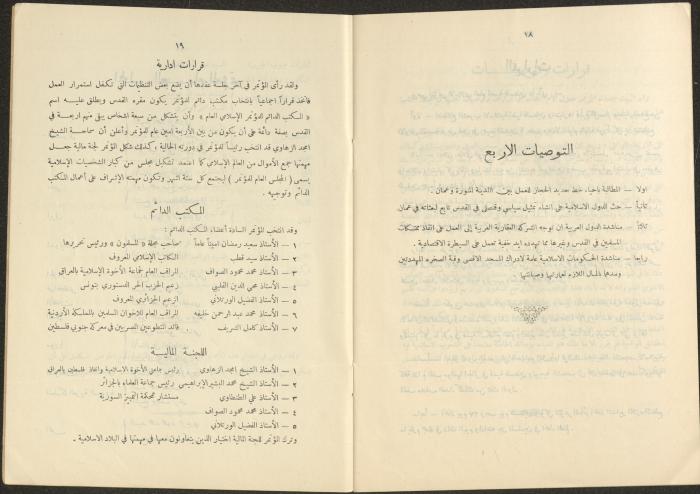 ١٨
التوصيات الاربع
اولا — المطالبة باحياء خط حديد الحجاز للعمل بين المدينة المنورة وعمان .
ثانياً — حث الدول الاسلامية على انشاء تمثيل سياسي وقنصلي في القدس تابع لبعثاته في عمان
ثالثاً — مناشدة الدول العربية ان توجه الشركة العقارية العربية إلى العمل على انقاذ ممتلكات
المسلمين في القدس وغيرها مما تهدده ايد خفية تعمل على السيطرة الاقتصادية .
رابعاً — مناشدة الحكومات الاسلامية عامة لادراك المسجد الاقصى وقبة الصخرة المهددتين
ومدهما بالمال اللازم لعمارتها وصيانتها .
١٩
قرارات ادارية
ولقد رأى المؤتمر في آخر جلسة عقدها أن يضع بعض التنظيمات التي تكفل استمرار العمل
فاتخذ قراراً اجماعياً بانتخاب مكتب دائم للمؤتمر يكون مقره القدس ويطلق عليه اسم
« المكتب الدائم للمؤتمر الإسلامي العام » وأن يتشكل من سبعة اشخاص يبقى منهم اربعة في
القدس بصفة دائمة على أن يكون من بين الأربعة أمين عام للمؤتمر وأعلن أن سماحة الشيخ
امجد الزهاوي قد انتخب رئيساً للمؤتمر في دورته الحالية ، كذلك شكل المؤتمر لجنة مالية جعل
مهمتها جمع الأموال من العالم الإسلامي كما اعتمد تشكيل مجلس من كبار الشخصيات الإسلامية
يسمى ( المجلس العام للمؤتمر ) ليجتمع كل ستة اشهر وتكون مهمته الإشراف على أعمال المكتب
الدائم وتوجيهه .
المكتب الدائم
وقد انتخب المؤتمر السادة أعضاء المكتب الدائم :
١ — الأستاذ سعيد رمضان اميناً عاماً صاحب مجلة « المسلمون » ورئيس تحريرها
٢ — الأستاذ سيد قطب الكاتب الإسلامي المعروف
٣ — الأستاذ محمد محمود الصواف المراقب العام لجماعة الأخوة الإسلامية بالعراق
٤ — الأستاذ محي الدين القليبي زعيم الحزب الحر الدستوري بتونس
٥ — الأستاذ الفضيل الورتلاني الزعيم الجزائري المعروف
٦ — الأستاذ محمد عبد الرحمن خليفه المراقب العام للاخوان المسلمين بالمملكة الأردنية
٧ — الأستاذ كامل الشريف قائد المتطوعين المصريين في معركة جنوبي فلسطين
اللجنة المالية
١ — الأستاذ الشيخ امجد الزهاوي رئيس جماعتي الأخوة الاسلامية وانقاذ فلسطين بالعراق
٢ — الأستاذ الشيخ محمد البشير الإبراهيمي رئيس جماعة العلماء بالجزائر
٣ — الأستاذ علي الطنطاوي مستشار محكمة التمييز السورية
٤ — الأستاذ محمد محمود الصواف
٥ — الأستاذ الفضيل الورتلاني
وترك المؤتمر للجنة المالية اختيار الذين يتعاونون معها في مهمتها في البلاد الاسلامية .